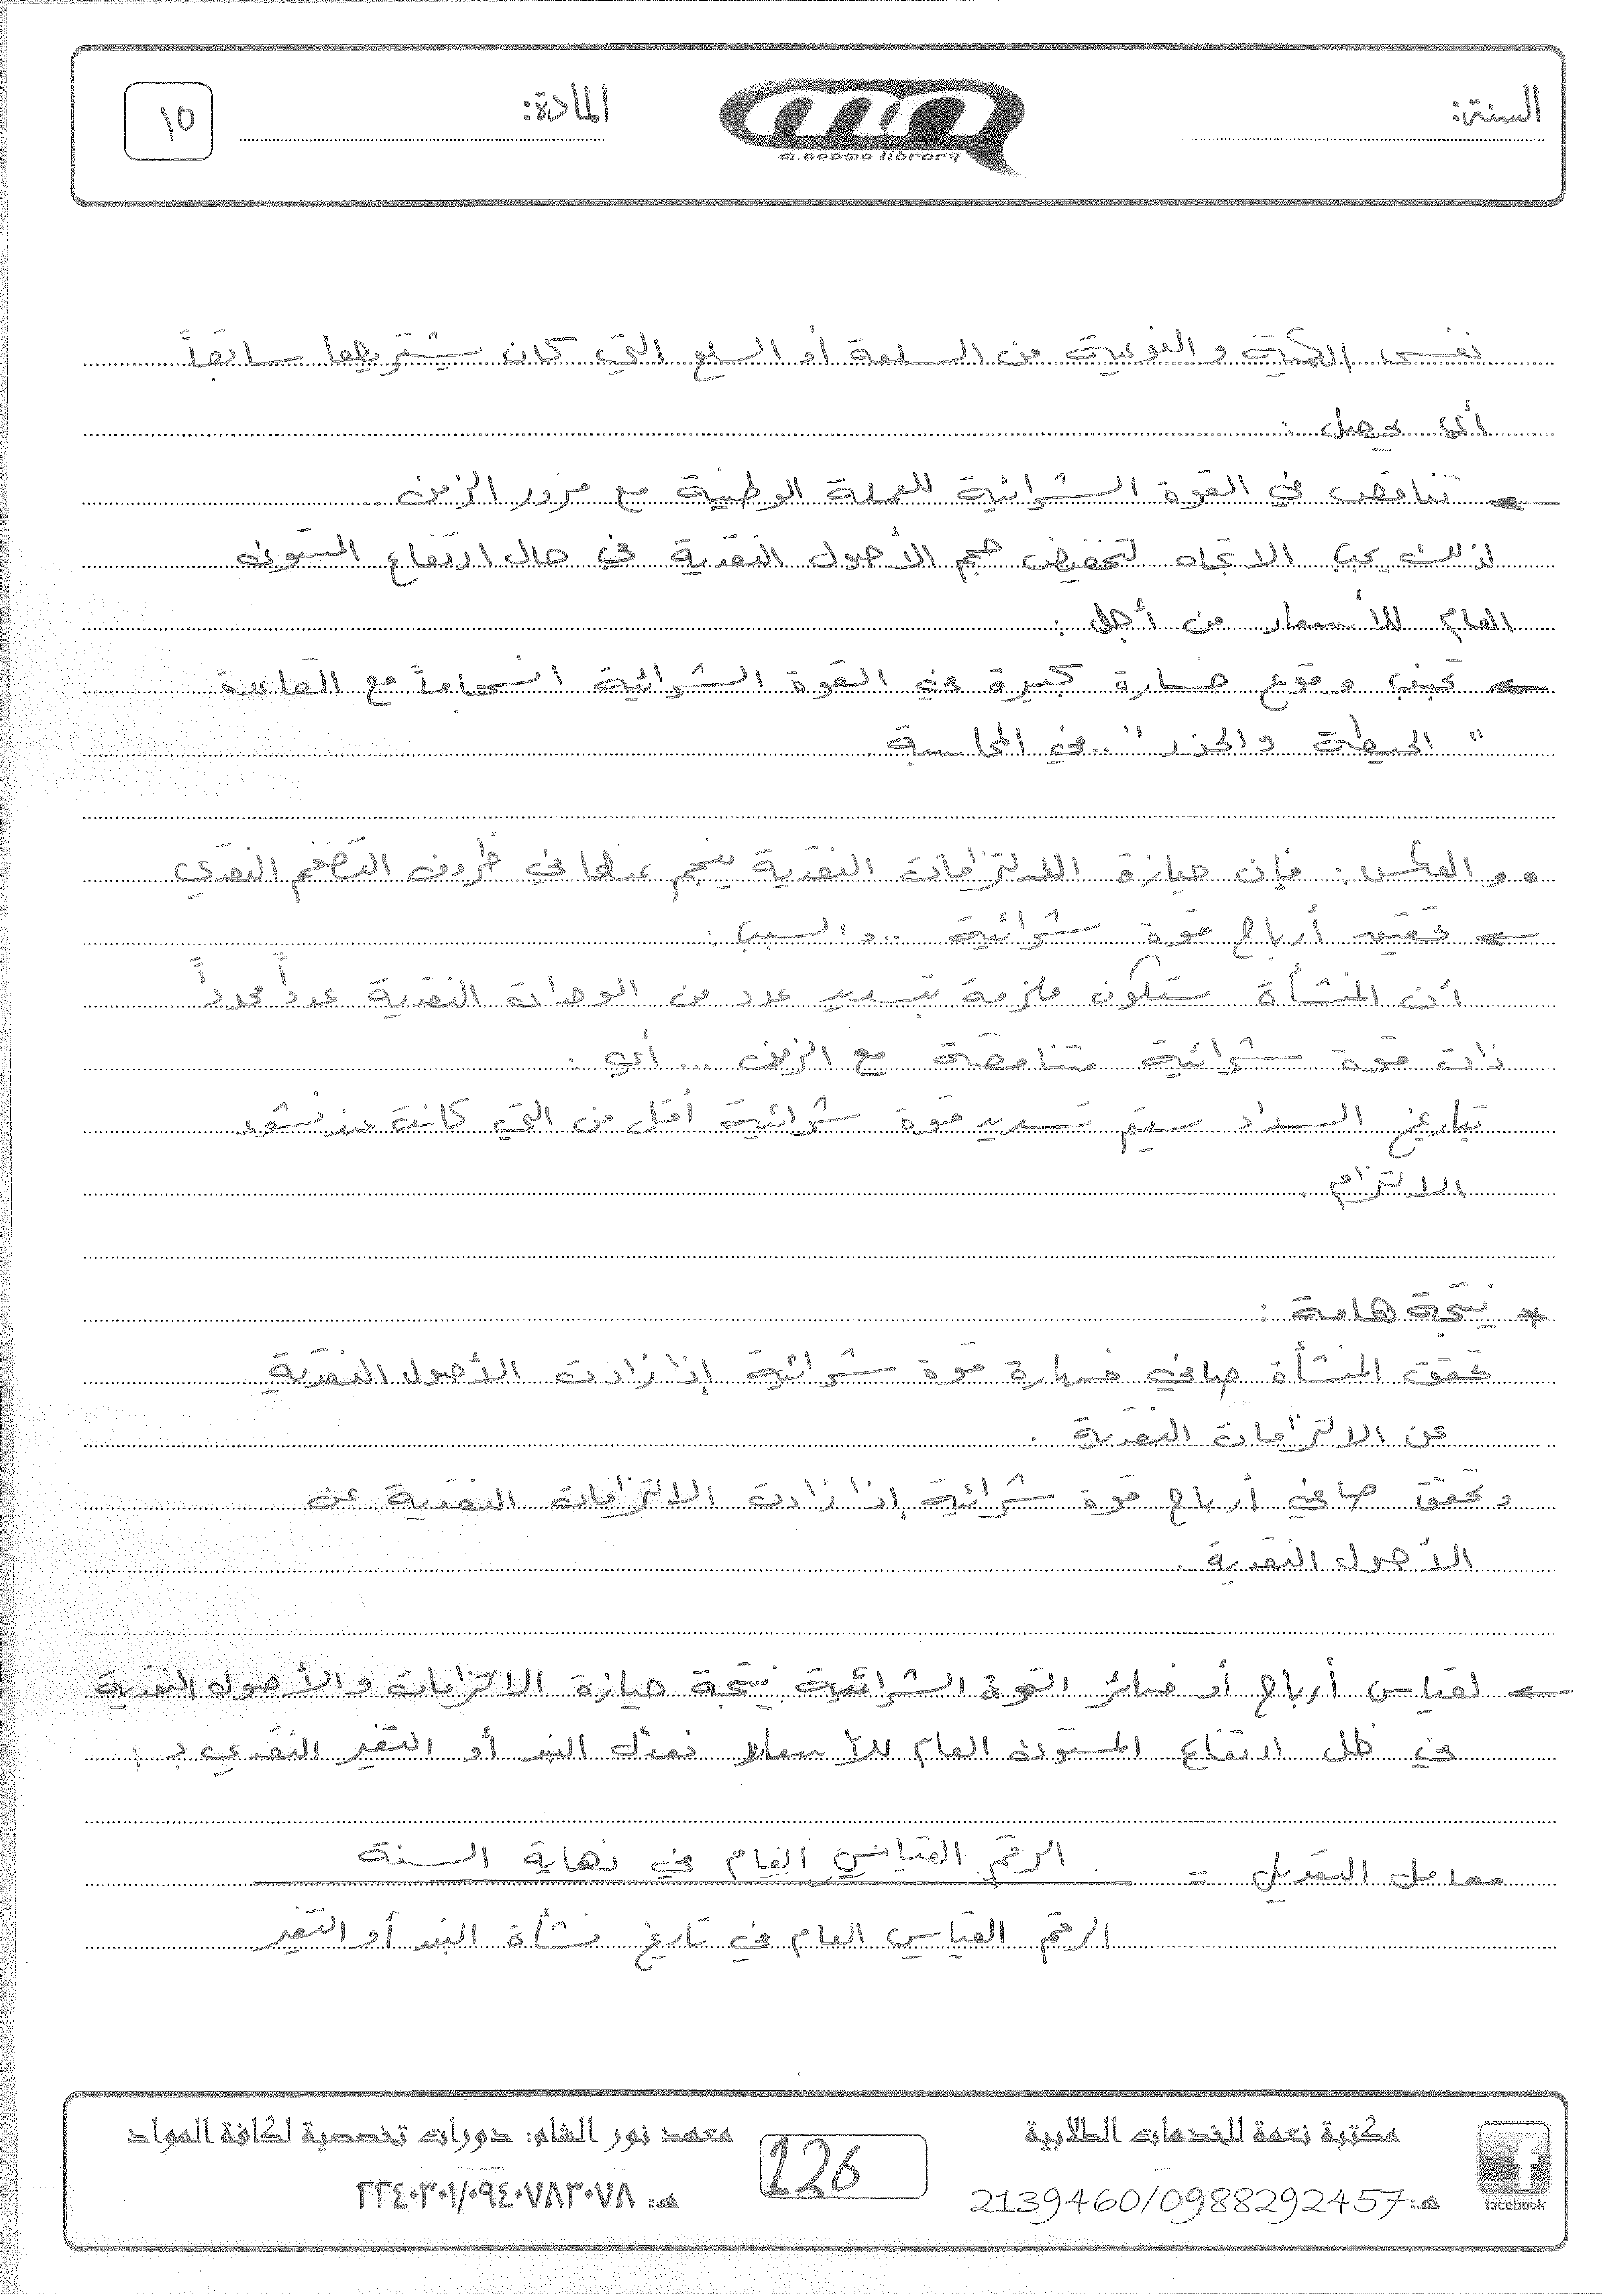 السنة:
m.neoma library
المادة:
١٥
نفس الكمية والنوعية من السلعة أو السلع التي كان يشتريها سابقاً
أي يحصل :
← تناقص في القوة الشرائية للعملة الوطنية مع مرور الزمن ..
لذلك يجب الاتجاه لتخفيض حجم الأصول النقدية في حال ارتفاع المستوى
العام للأسعار من أجل :
← تجنب وقوع خسارة كبيرة في القوة الشرائية انسجاماً مع القاعدة
" الحيطة والحذر " .. في المحاسبة
• والعكس : فإن حيازة الالتزامات النقدية ينجم عنها في ظروف التضخم النقدي
← تحقيق أرباح قوة شرائية .. والسبب :
أن المنشأة ستكون ملزمة بتسديد عدد من الوحدات النقدية عدداً محدداً
ذات قوة شرائية متناقصة مع الزمن ... أي :
بتاريخ السداد سيتم تسديد قوة شرائية أقل من التي كانت عند نشوء
الالتزام .
* نتيجة هامة :
تحقق المنشأة صافي خسارة قوة شرائية إذا زادت الأصول النقدية
عن الالتزامات النقدية .
وتحقق صافي أرباح قوة شرائية إذا زادت الالتزامات النقدية عن
الأصول النقدية .
← لقياس أرباح أو خسائر القوة الشرائية نتيجة حيازة الالتزامات والأصول النقدية
في ظل ارتفاع المستوى العام للأسعار نعدّل البند أو التغير النقدي بـ :
معامل التعديل = الرقم القياسي العام في نهاية السنة
الرقم القياسي العام في تاريخ نشأة البند أو التغير
facebook
مكتبة نعمة للخدمات الطلابية
هـ: 2139460/0988292457
126
معهد نور الشام: دورات تخصصية لكافة المواد
هـ: ٢٢٤٠٣٠١/٠٩٤٠٧٨٣٠٧٨